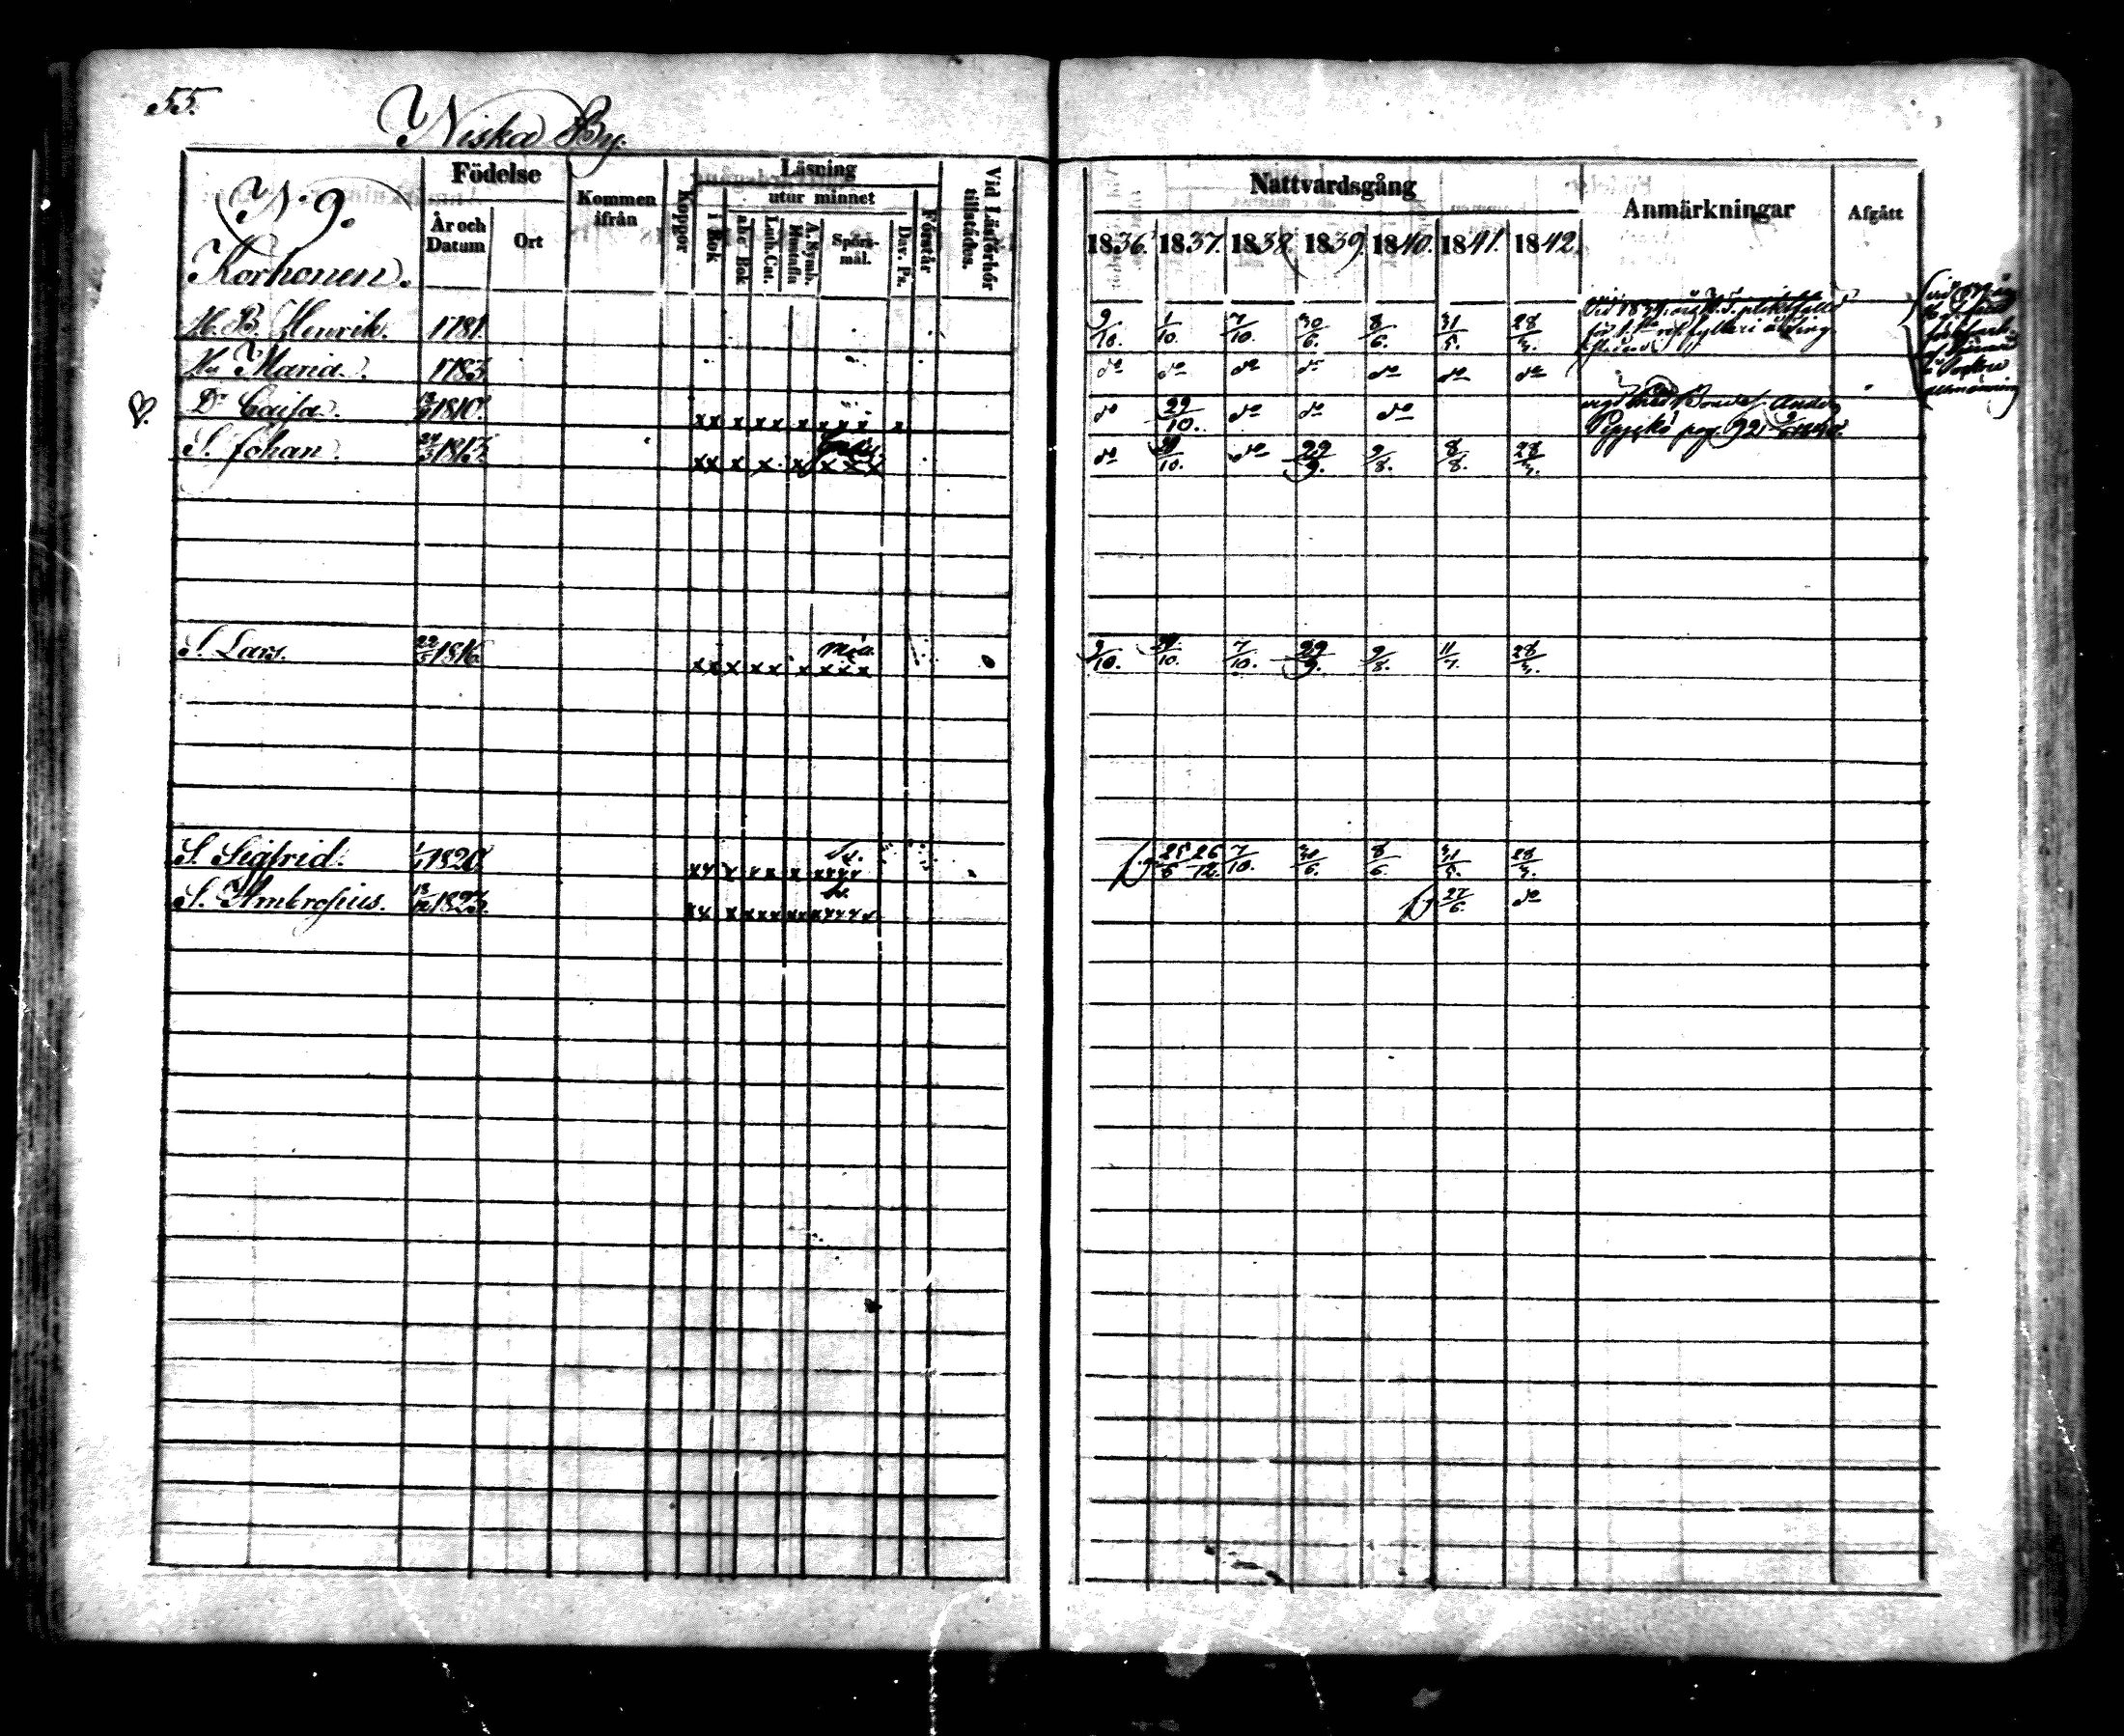 55.
Niska By.
N. 9.
Korhonen.
Födelse
År och Datum
Ort
Kommen ifrån
Koppor
Läsning
i Bok
utur minnet
abc Bok
Luth. Cat.
A. Symb. Hustafla
Spörsmål.
Dav. Ps.
Förstår
Vid Läsförhör tillstädes.
Nattvardsgång
1836. 1837. 1838. 1839. 1840. 1841. 1842.
Anmärkningar
Afgått
H. B. Henrik. 1781. 9/10. 1/10. 7/10. 30/6. 8/6. 31/5. 28/3.
Hu Maria. 1783. do do do do do do do
Dr Caisa. 1810. xx x xx x xxx x do 29/10. do do do
vigd med Bonden Anders
pag. 92
S. Johan. 1813. xx x x x xxx do 29/10. do 29/9. 9/8. 8/8. 28/3.
S. Lars. 22/5 1816. xx x xx x xxx 9/10. 29/10. 7/10. 29/9. 9/8. 11/7. 28/3.
S. Sigfrid. 1820. xx x xx x xxxx 25/6 26/12. 7/10. 30/6. 8/6. 31/5. 28/3.
S. Ambrosius. 1823. xx x xxx xxxxxx 27/6. do